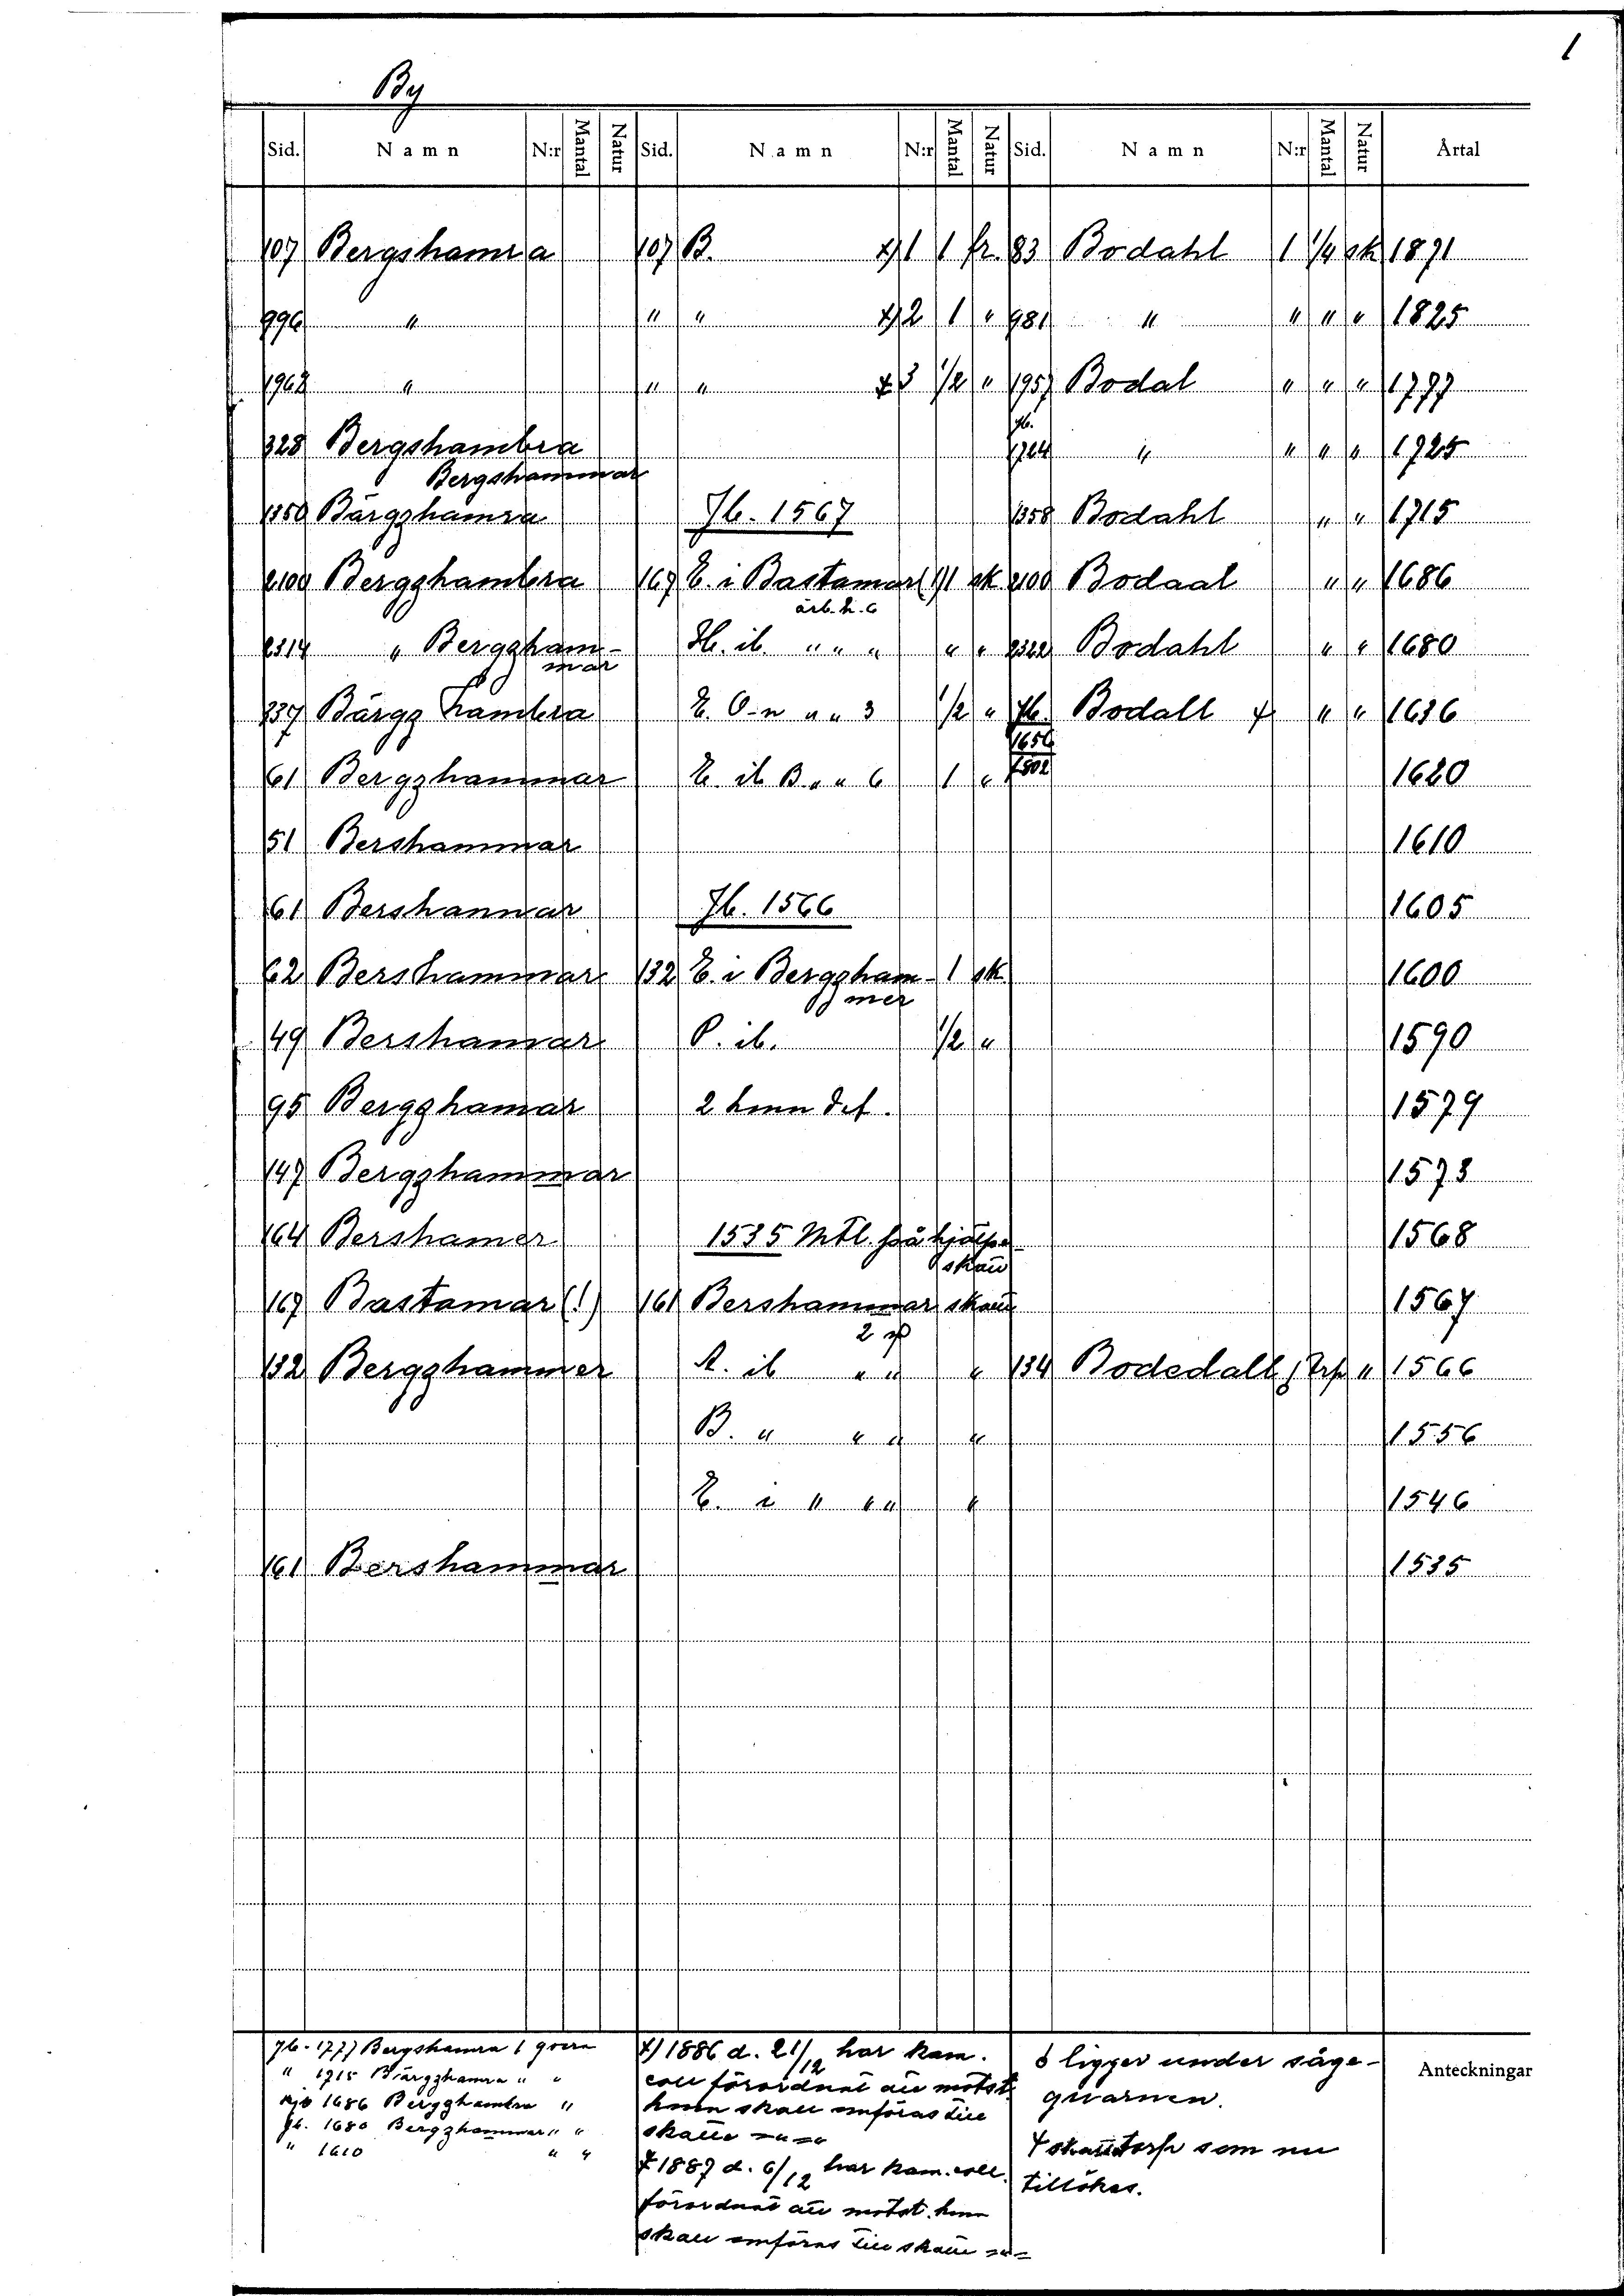 1
By
Sid. Namn N:r Mantal Natur Sid. Namn N:r Mantal Natur Sid. Namn N:r Mantal Natur Årtal
107 Bergshamra 107 B. x) 1 1 fr. 83 Bodahl 1 1/4 sk 1871
996 " " " x) 2 1 " 981 " " " " 1825
1968 " " " x 3 1/2 " 1957 Bodal " " " 1777
Jb.
328 Bergshambra 1724 " " " " 1725
Bergshammar
1350 Bärgzhamra Jb. 1567 1358 Bodahl " " 1715
2109 Bergzhambra 167 E. i Bastamar (!) 1 sk 2100 Bodaal " " 1686
årl. h. 6
2314 " Bergzham- H. ib. " " " " " 2322 Bodahl " " 1680
mar
237 Bärgz hambra E. O-n " " 3 1/2 " Jb. Bodall + " " 1636
1654
61 Bergzhammar E. ib B " " 6 1 " 1620
51 Bershammar 1610
61 Bershammar Jb. 1566 1605
62 Bershammar 132 E. i Bergzham- 1 sk 1600
mer
49 Bershamar P. ib. 1/2 " 1590
95 Bergzhamar 2 hmn det. 1579
147 Bergzhammar 1573
164 Bershamer 1535 Mtl. på hjälpe 1568
skatt
167 Bastamar (!) 161 Bershammar skatt 1567
2
132 Bergzhammer A. ib " " " 134 Bodedall 1 trp " 1566
B. " " " " 1556
E. i " " " " 1546
161 Bershammar 1535
Jb. 1777 Bergshamra 1 qvarn
" 1715 Bärgzhamra " "
1686 Bergzhambra "
Jb. 1680 Bergzhammar " "
" 1610 " "
x) 1886 d. 21/12 har kam.
coll förordnat att motst.
hmn skall omföras till
skatte
x 1887 d. 6/12 har kam. coll.
förordnat att motst. hmn
skall omföras till skatte
ö ligger under såge-
qvarnen.
+ skattetorp som nu
tillökes.
Anteckningar